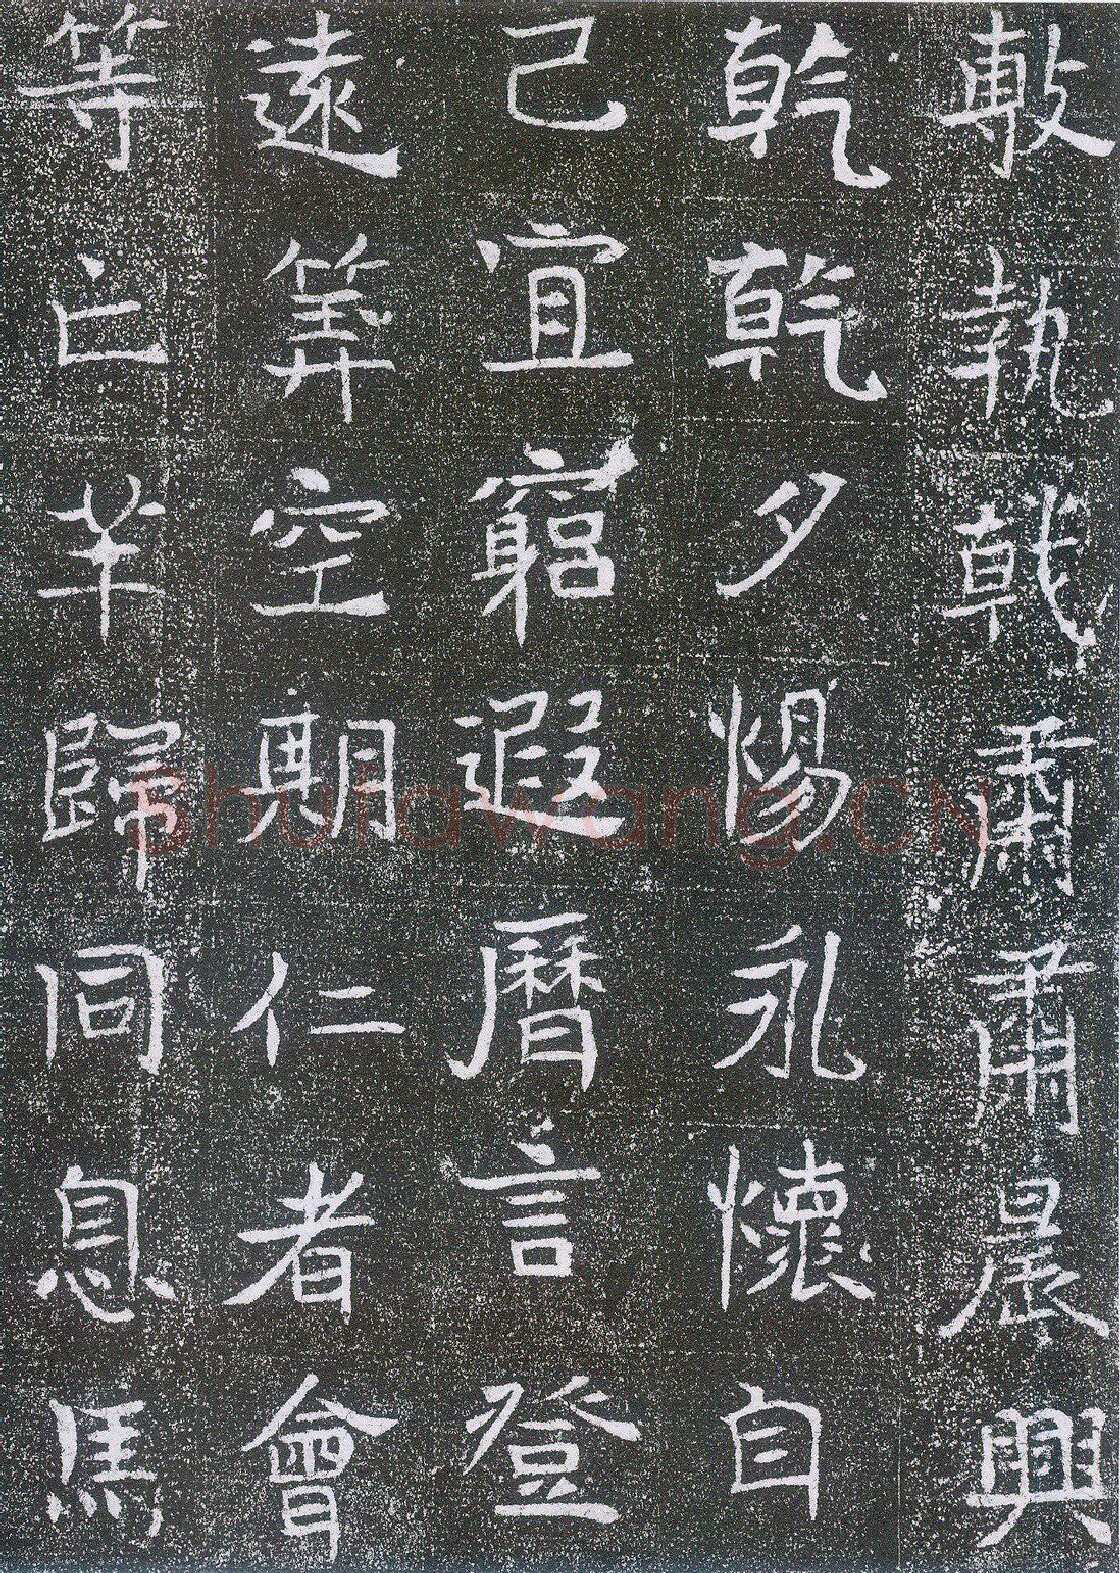 敷執戟肅肅晨興
乾乾夕惕永懷自
己宜窮遐曆言登
遠筭空期仁者會
等亡羊歸同息馬
Shufawang.CN